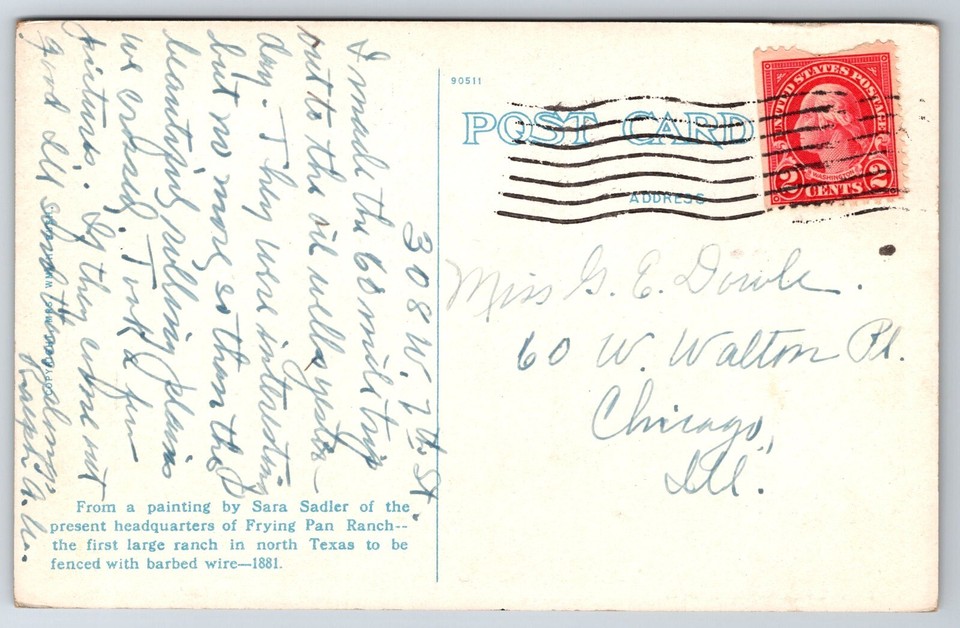 308 W. 7th St.
I made the 60 mile trip
out to the oil wells yester-
day. They were interesting
but no more so than the
beautiful rolling plains
we crossed. Took a few
pictures. If they come out
good I'll send them along.
Ralph A. U.
COPYRIGHT MRS
From a painting by Sara Sadler of the
present headquarters of Frying Pan Ranch--
the first large ranch in north Texas to be
fenced with barbed wire—1881.
90511
POST CARD
ADDRESS
UNITED STATES POSTAGE
WASHINGTON
2 CENTS 2
Miss G. E. Dowle.
60 W. Walton Pl.
Chicago,
Ill.